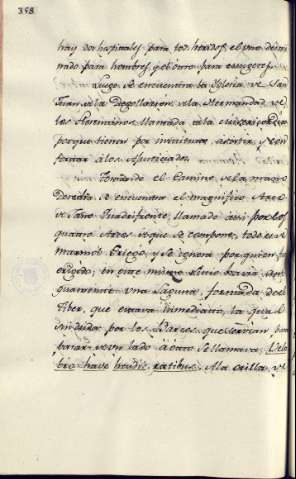 358
hay dos hospitales para los heridos, el uno desti
nado para hombres, y el otro para mugeres.
Luego se encuentra la Iglesia de San
Juan de la Degollacion, de la Hermandad de
los Florentinos llamada de la Misericordia
porque tienen por instituto asistir, y con
fortar á los Ajusticiados.
Tomando el Camino de la mano
Derecha se encuentra el magnifico Arco
de Jano Quadrifronte, llamado asi por los
quatro Arcos de que se compone, todo de
marmol Griego, y se ignora por quien fue
erigido; en este mismo sitio havia
una Laguna, formada del
Tiber, que estava inmediato, la que
por los Barcos, que servian
pasar de un lado á otro se llamava,
ratibus. A la orilla de